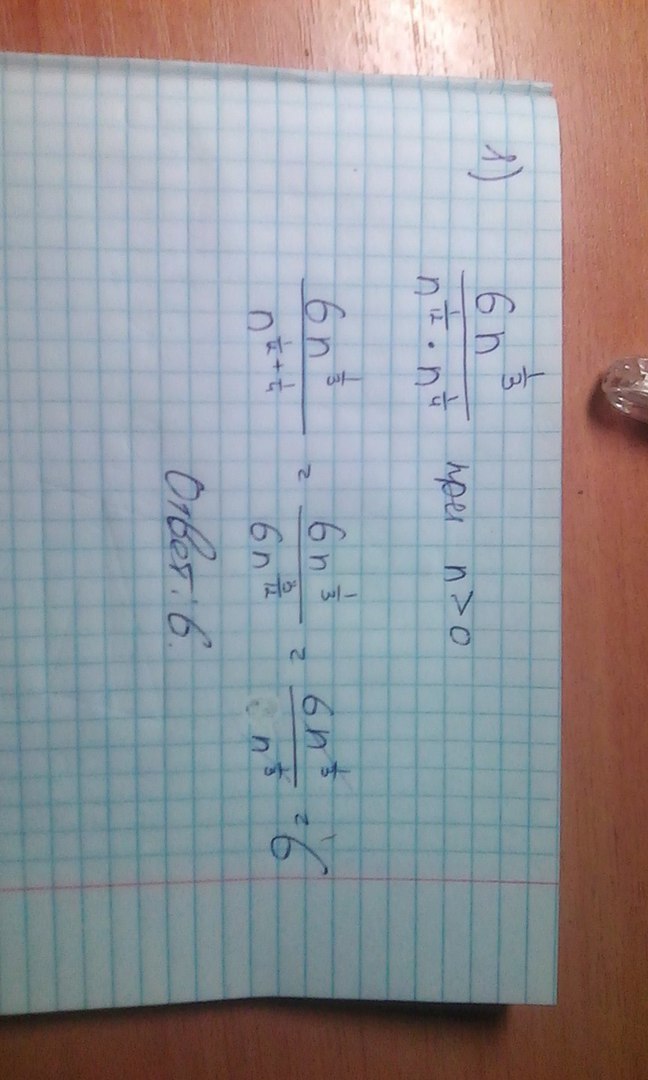 1) 6n^(1/3) / (n^(1/12) · n^(1/4)) при n>0
6n^(1/3) / n^(1/12 + 1/4) = 6n^(1/3) / 6n^(3/12) = 6n^(1/3) / n^(1/3) = 6
Ответ: 6.